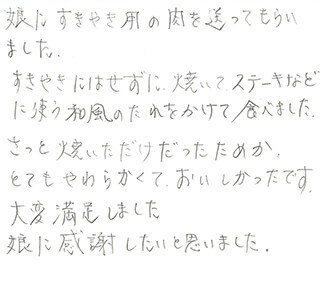 娘にすきやき用の肉を送ってもらい
ました.
すきやきにはせずに.焼いて.ステーキなど
に使う和風のたれをかけて食べました.
さっと焼いただけだったためか,
とてもやわらかくて.おいしかったです.
大変満足しました
娘に感謝したいと思いました.